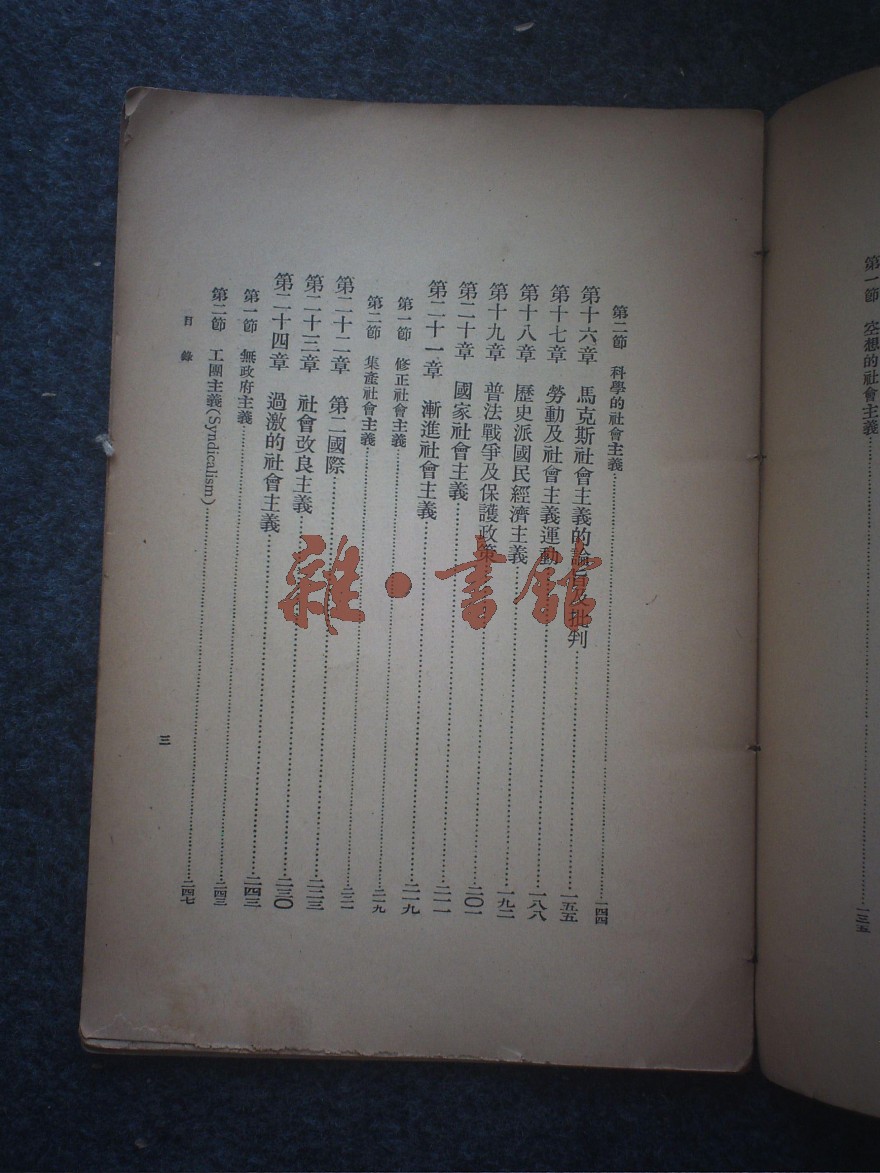 第一節 空想的社會主義……一三五
第二節 科學的社會主義……一四四
第十六章 馬克斯社會主義的論旨及批判……一五五
第十七章 勞動及社會主義運動……一八八
第十八章 歷史派國民經濟主義……一九二
第十九章 普法戰爭及保護政策……二〇一
第二十章 國家社會主義……二一一
第二十一章 漸進社會主義……二一九
第一節 修正社會主義……二一九
第二節 集產社會主義……二二一
第二十二章 第二國際……二二三
第二十三章 社會改良主義……二三〇
第二十四章 過激的社會主義……二四三
第一節 無政府主義……二四三
第二節 工團主義(Syndicalism)……二四七
目錄
三
雜·書館